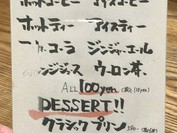 ホットコーヒー アイスコーヒー
ホットティー アイスティー
コーラ ジンジャーエール
ウーロン茶.
ALL 100yen.
DESSERT!!
クラシックプリン